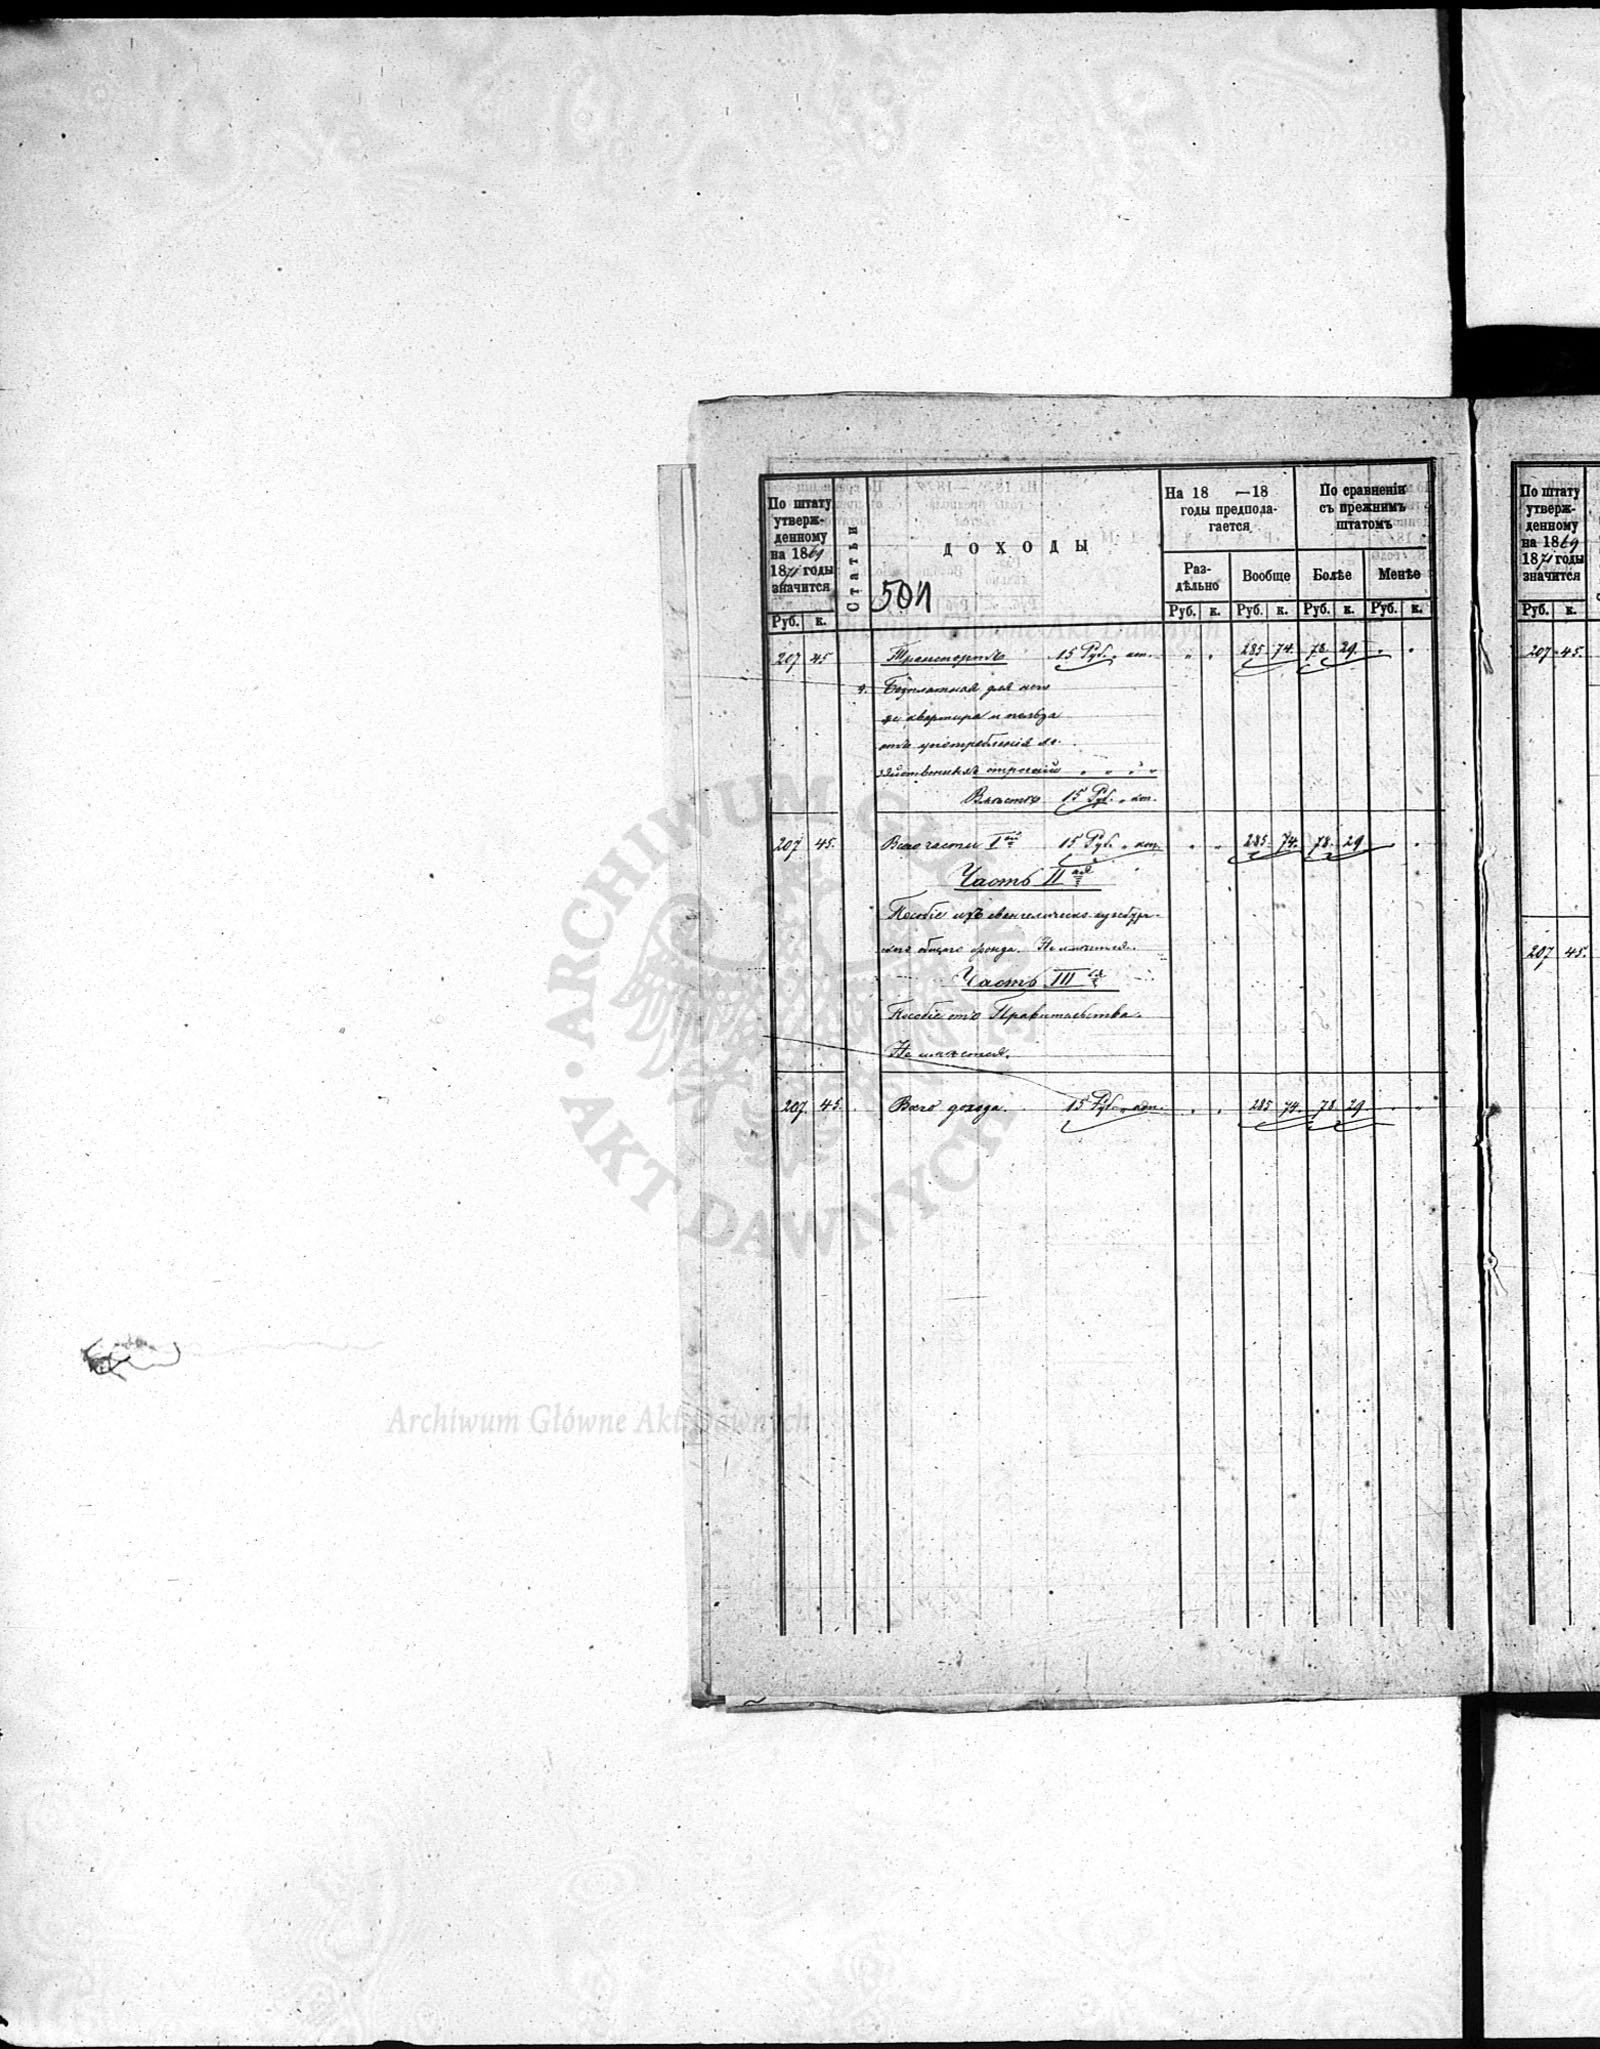 По штату
утверж-
денному
на 1869
1871 годы
значится
Руб. к.
Статьи
ДОХОДЫ
504
На 18 —18
годы предпола-
гается
Раз-
дѣльно
Вообще
Руб. к. Руб. к.
По сравненію
съ прежнимъ
штатомъ
Болѣе Менѣе
Руб. к. Руб. к.
207 45 Транспортъ 15 Руб. " коп. " " 285 74 78 29 " "
Безплатная для него
же квартира и польза
отъ употребленія хо-
зяйственныхъ строеній " " " "
Вмѣстѣ 15 Руб. " коп.
207 45. Всего части I ой 15 Руб. " коп. " " 285 74. 78. 29 " "
Часть II ая
Пособіе изъ евангелическо-аугсбург-
скаго общаго фонда. Не имѣется.
Часть III ья
Пособіе отъ Правительства.
Не имѣется.
207. 45. Всего дохода. 15 Руб. " коп. " " 285 74. 78 29. " "
По штату
утверж-
денному
на 1869
1871 годы
значится
Руб. к.
207 45.
207 45.
Archiwum Główne Akt Dawnych
ARCHIWUM GŁÓWNE
AKT DAWNYCH
Archiwum Główne Akt Dawnych